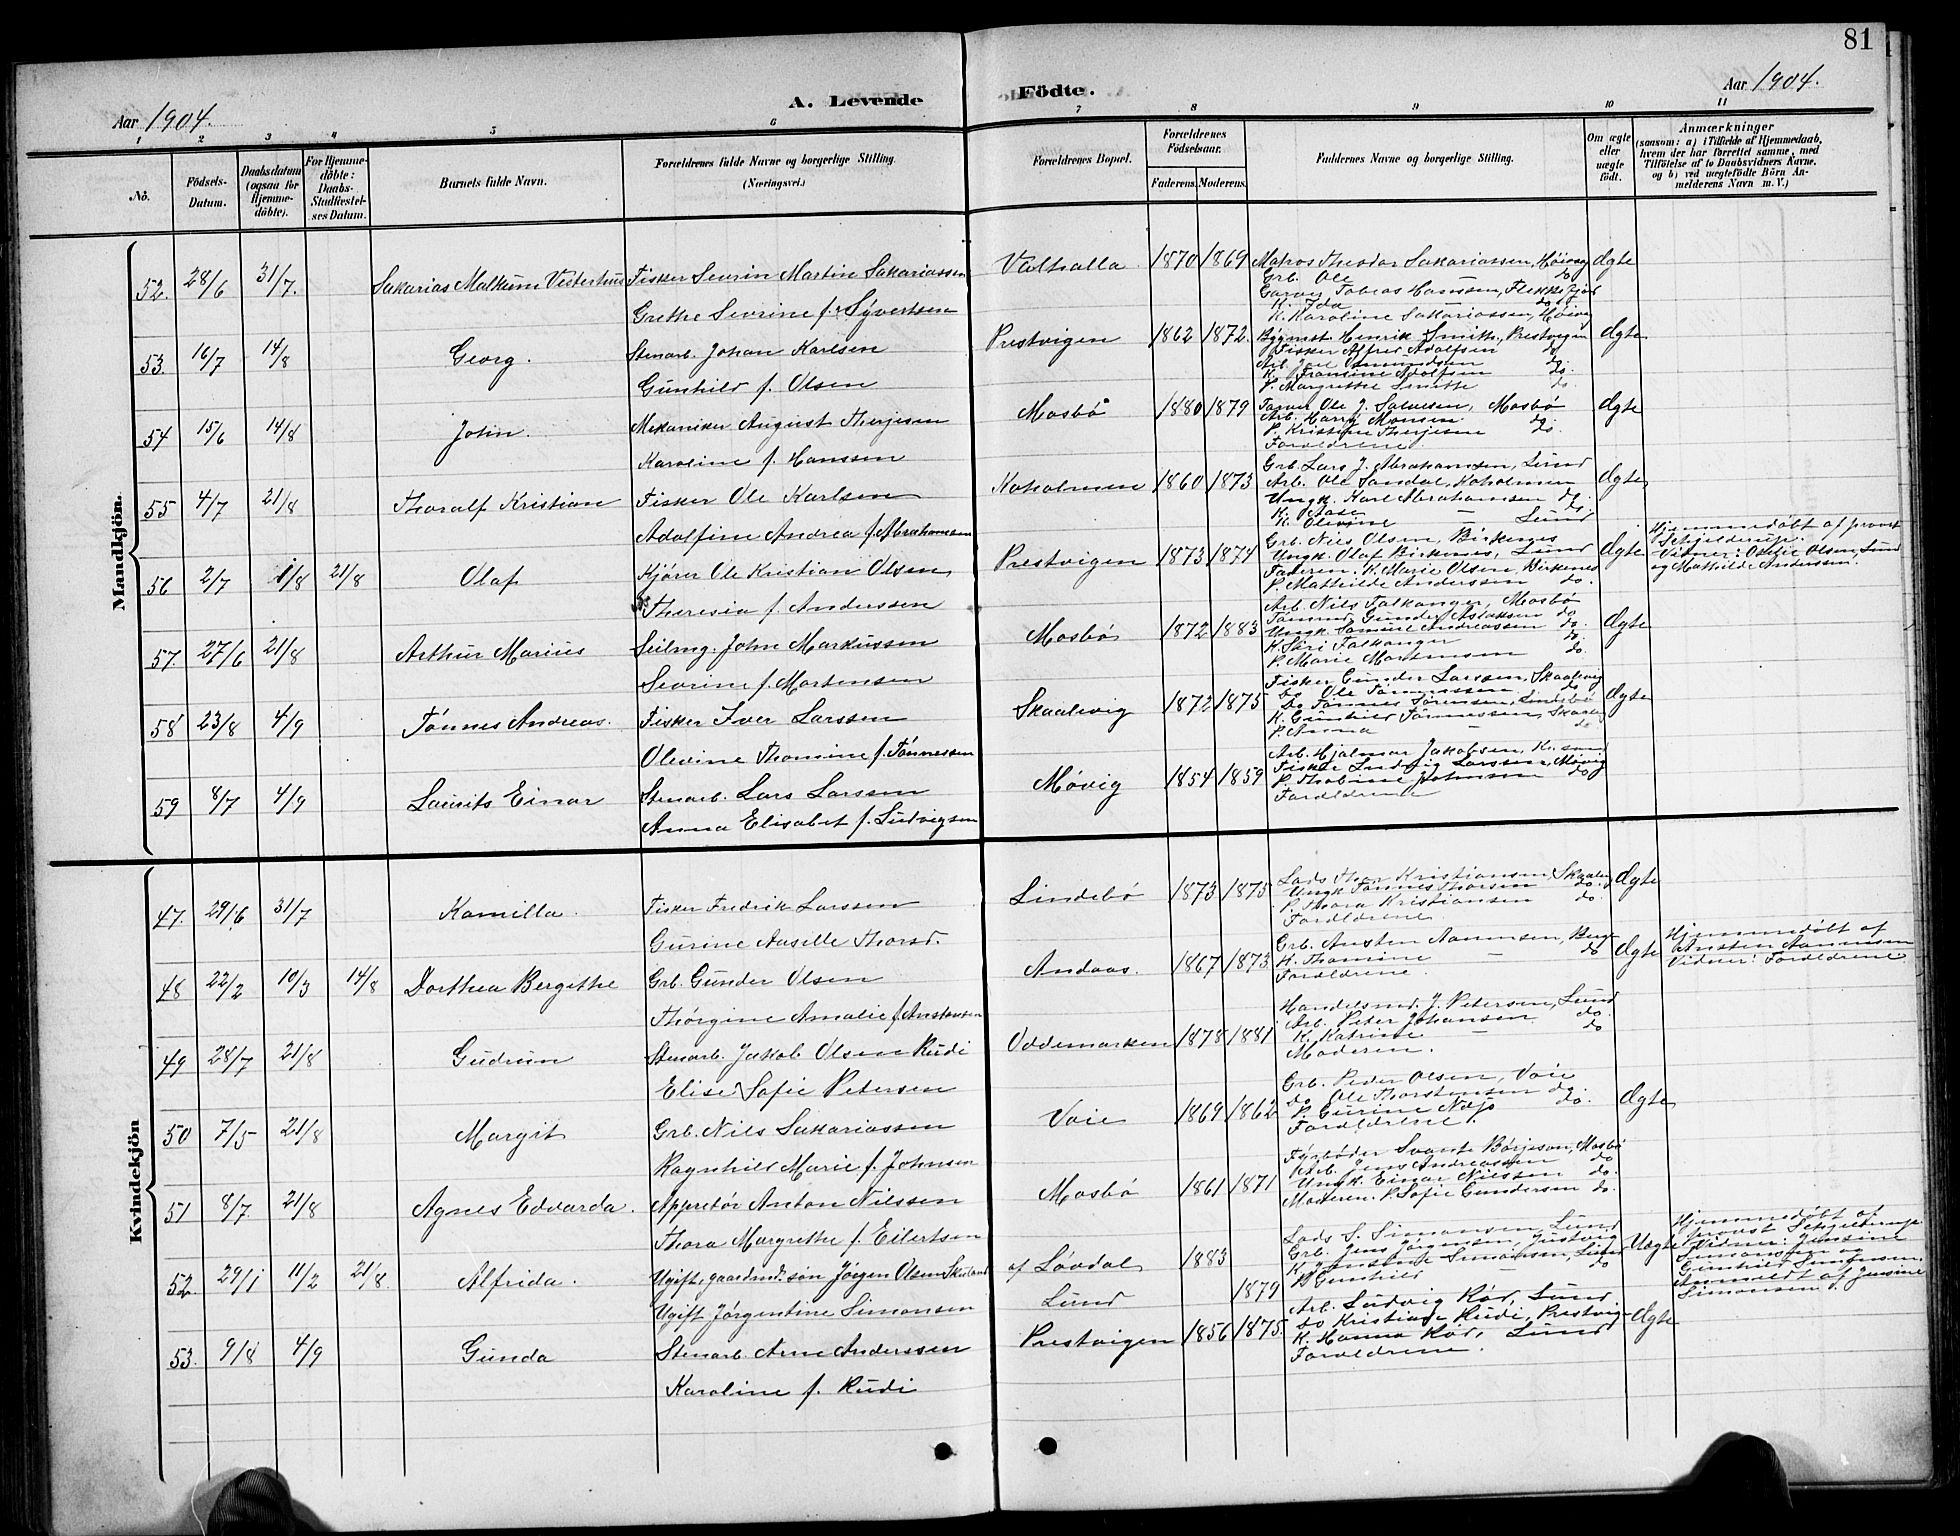 81
Aar 1904.
A. Levende
Födte.
Aar 1904.
1 2 3 4 5 6 7 8 9 10 11
No.
Födsels-Datum.
Daabsdatum (ogsaa for Hjemme-döbte).
For Hjemme-döbte: Daabs-Stadfæstel-ses Datum.
Barnets fulde Navn.
Forældrenes fulde Navne og borgerlige Stilling.
(Næringsvei.)
Forældrenes Bopæl.
Forældrenes Födselsaar.
Faderens. Moderens.
Faddernes Navne og borgerlige Stilling.
Om ægte eller uægte födt.
Anmærkninger
(saasom: a) i Tilfælde af Hjemmedaab,
hvem der har forrettet samme, med
Tilföielse af to Daabsvidners Navne.
og b) ved uægtefödte Börn An-
melderens Navn m. V.)
Mandkjön.
52. 28/6 31/7. Sakarias Malkum Vesterhus Fisker Sevrin Martin Sakariassen
Grethe Sevrine f. Syvertsen
Valhalla 1870 1869 Matros Theodor Sakariassen, Høivog
Grb. Ole do
Garver Tobias Hanssen, Flekkefjord
K. Ida do
K. Karoline Sakariassen, Høivog
Ægte
53. 16/7 14/8 Georg. Stenarb. Johan Karlsen
Gunhild f. Olsen
Prestvigen 1862 1872. Bygmst. Henrik Smith, Prestvigen
Fisker Alfred Adolfsen do
Arb. Joel Omundsen do.
K. Fransine Adolfsen do.
P. Margrethe Smith do.
Ægte
54 15/6 14/8 John. Mekaniker August Therjesen
Karoline f. Hanssen
Mosbø 1880 1879 Farver Ole J. Salvesen, Mosbø
Arb. Harry Monsen do.
P. Kristine Therjesen do.
Forældrene.
Ægte
55 4/7 21/8 Thoralf Kristian Fisker Ole Karlsen
Adolfine Andrea f. Abrahamsen
Koholmen 1860 1873 Grb. Lars J. Abrahamsen, Lund
Arb. Ole Sandal, Koholmen
Ungk. Karl Abrahamsen do.
K. Aase do.
K. Olevine – Lund
Ægte
56 2/7 1/8 21/8 Olaf Kjører Ole Kristian Olsen
Theresia f. Anderssen
Prestvigen 1873 1874 Grb. Nils Olsen, Birkenes
Ungk. Olaf Birkenes, Lund
Faderen. K. Marie Olsen, Birkenes
P. Mathilde Anderssen do.
Ægte
Hjemmedøbt af provst
Schjelderup.
Vidner: Olsen, Lund
og Mathilde Anderssen.
57. 27/6 21/8 Arthur Marius Seilmg. John Markussen
Sevrine f. Mortensen
Mosbø 1872 1883 Arb. Nils Falkanger, Mosbø
Tømmd. Gunder Aslaksen do
Ungk. Samuel Andreassen do.
K. Siri Falkanger do.
P. Marie Mortensen do.
Ægte
58 23/8 4/9 Tønnes Andreas. Fisker Iver Larssen
Olevine Thomine f. Tønnessen
Skaalevig 1872 1875 Fisker Gunder Larssen, Skaalevig
Do Ole Tønnessen do
Do Tønnes Sørensen, Lindebø
K. Gunhild Tønnessen, Skaalev.
P. Anna – do
Ægte
59 8/7 4/9 Laurits Einar Stenarb. Lars Larssen
Anna Elisabet f. Ludvigsen
Møvig 1854 1859 Arb. Hjalmar Jakobsen, Kr.sand
Fisker Ludvig Larssen, Møvig
P. Thobine Johnsen do
Forældrene
Kvindekjön
47. 29/6 31/7 Kamilla. Fisker Fredrik Larssen
Gurine Aasille Thorsd.
Lindebø 1873 1875 Lods Thor Kristiansen, Skaalev.
Ungk. Tønnes Thorsen do.
P. Thora Kristiansen do.
Forældrene.
Ægte
48 22/2 10/3 14/8 Dorthea Bergithe Grb. Gunder Olsen
Thorgine Amalie f. Anstensen
Andaas. 1867 1873 Grb. Ansten Aanensen, Berge
K. Thomine – do
Forældrene.
Ægte
Hjemmedøbt af
Ansten Aanensen
Vidner: Forældrene
49 28/7 21/8 Gudrun Stenarb. Jakob Olsen Rudi
Elise Sofie Petersen
Oddemarken 1878 1881 Handelsmd. J. Petersen, Lund
Arb. Peter Johansen do.
K. Katrine – do
Moderen.
50 7/5 21/8 Margit Grb. Nils Sakariassen
Ragnhild Marie f. Johnsen
Vaie 1869 1862 Grb. Peder Olsen, Vaie
Do Ole Thorstensen do.
P. Gurine Næp do.
Forældrene.
Ægte
51 8/7 21/8 Agnes Edvarda. Appretør Anton Nilssen
Thora Margrethe f. Eilertsen
Mosbø 1861 1871 Fyrbøder Svante Børjeson, Mosbø
Arb. Jens Andreassen do
Ungk. Einar Nilssen do.
Moderen. P. Sofie Gundersen do.
52. 29/1 11/2 21/8. Alfrida. Ugift, gaardmd.søn Jørgen Olsen Skuland
Ugift Jørgentine Simonsen
af Løvdal 1883
Lund 1879
Lods S. Simonsen, Lund
Grb. Jens Jørgensen, Justvig
K. Simonsen, Lund
P. Gunhild – do
Uægte
Hjemmedøbt af
provst Schjelderup
Vidner: Jensine
Simonsen og
Gunhild
Anmeldt af Jensine
Simonsen.
53. 9/8 4/9 Gunda Stenarb. Arne Anderssen
Karoline f. Rudi
Prestvigen 1856 1875. Arb. Ludvig Kør, Lund
Do Kristian Rudi, Prestvig
K. Hanna Kør, Lund
Forældrene.
Ægte